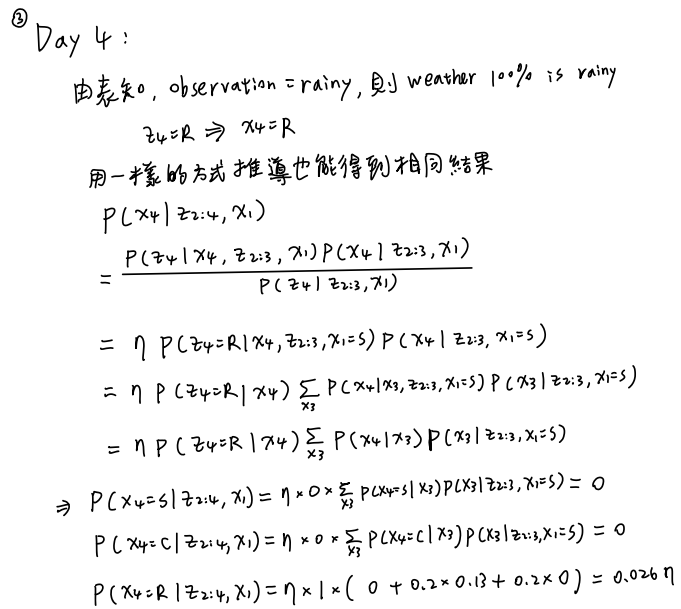 ③ Day 4:
由表知, observation = rainy, 則 weather 100% is rainy
z₄=R ⇒ x₄=R
用一樣的方式推導也能得到相同結果
P(x₄|z₂:₄, x₁)
= P(z₄|x₄, z₂:₃, x₁)P(x₄|z₂:₃, x₁) / P(z₄|z₂:₃, x₁)
= η P(z₄=R|x₄, z₂:₃, x₁=s) P(x₄|z₂:₃, x₁=s)
= η P(z₄=R|x₄) Σ_x₃ P(x₄|x₃, z₂:₃, x₁=s) P(x₃|z₂:₃, x₁=s)
= η P(z₄=R|x₄) Σ_x₃ P(x₄|x₃) P(x₃|z₂:₃, x₁=s)
⇒ P(x₄=s|z₂:₄, x₁) = η×0×Σ_x₃ P(x₄=s|x₃)P(x₃|z₂:₃, x₁=s) = 0
P(x₄=c|z₂:₄, x₁) = η×0×Σ_x₃ P(x₄=c|x₃)P(x₃|z₂:₃, x₁=s) = 0
P(x₄=R|z₂:₄, x₁) = η×1×( 0 + 0.2×0.13 + 0.2×0 ) = 0.026η